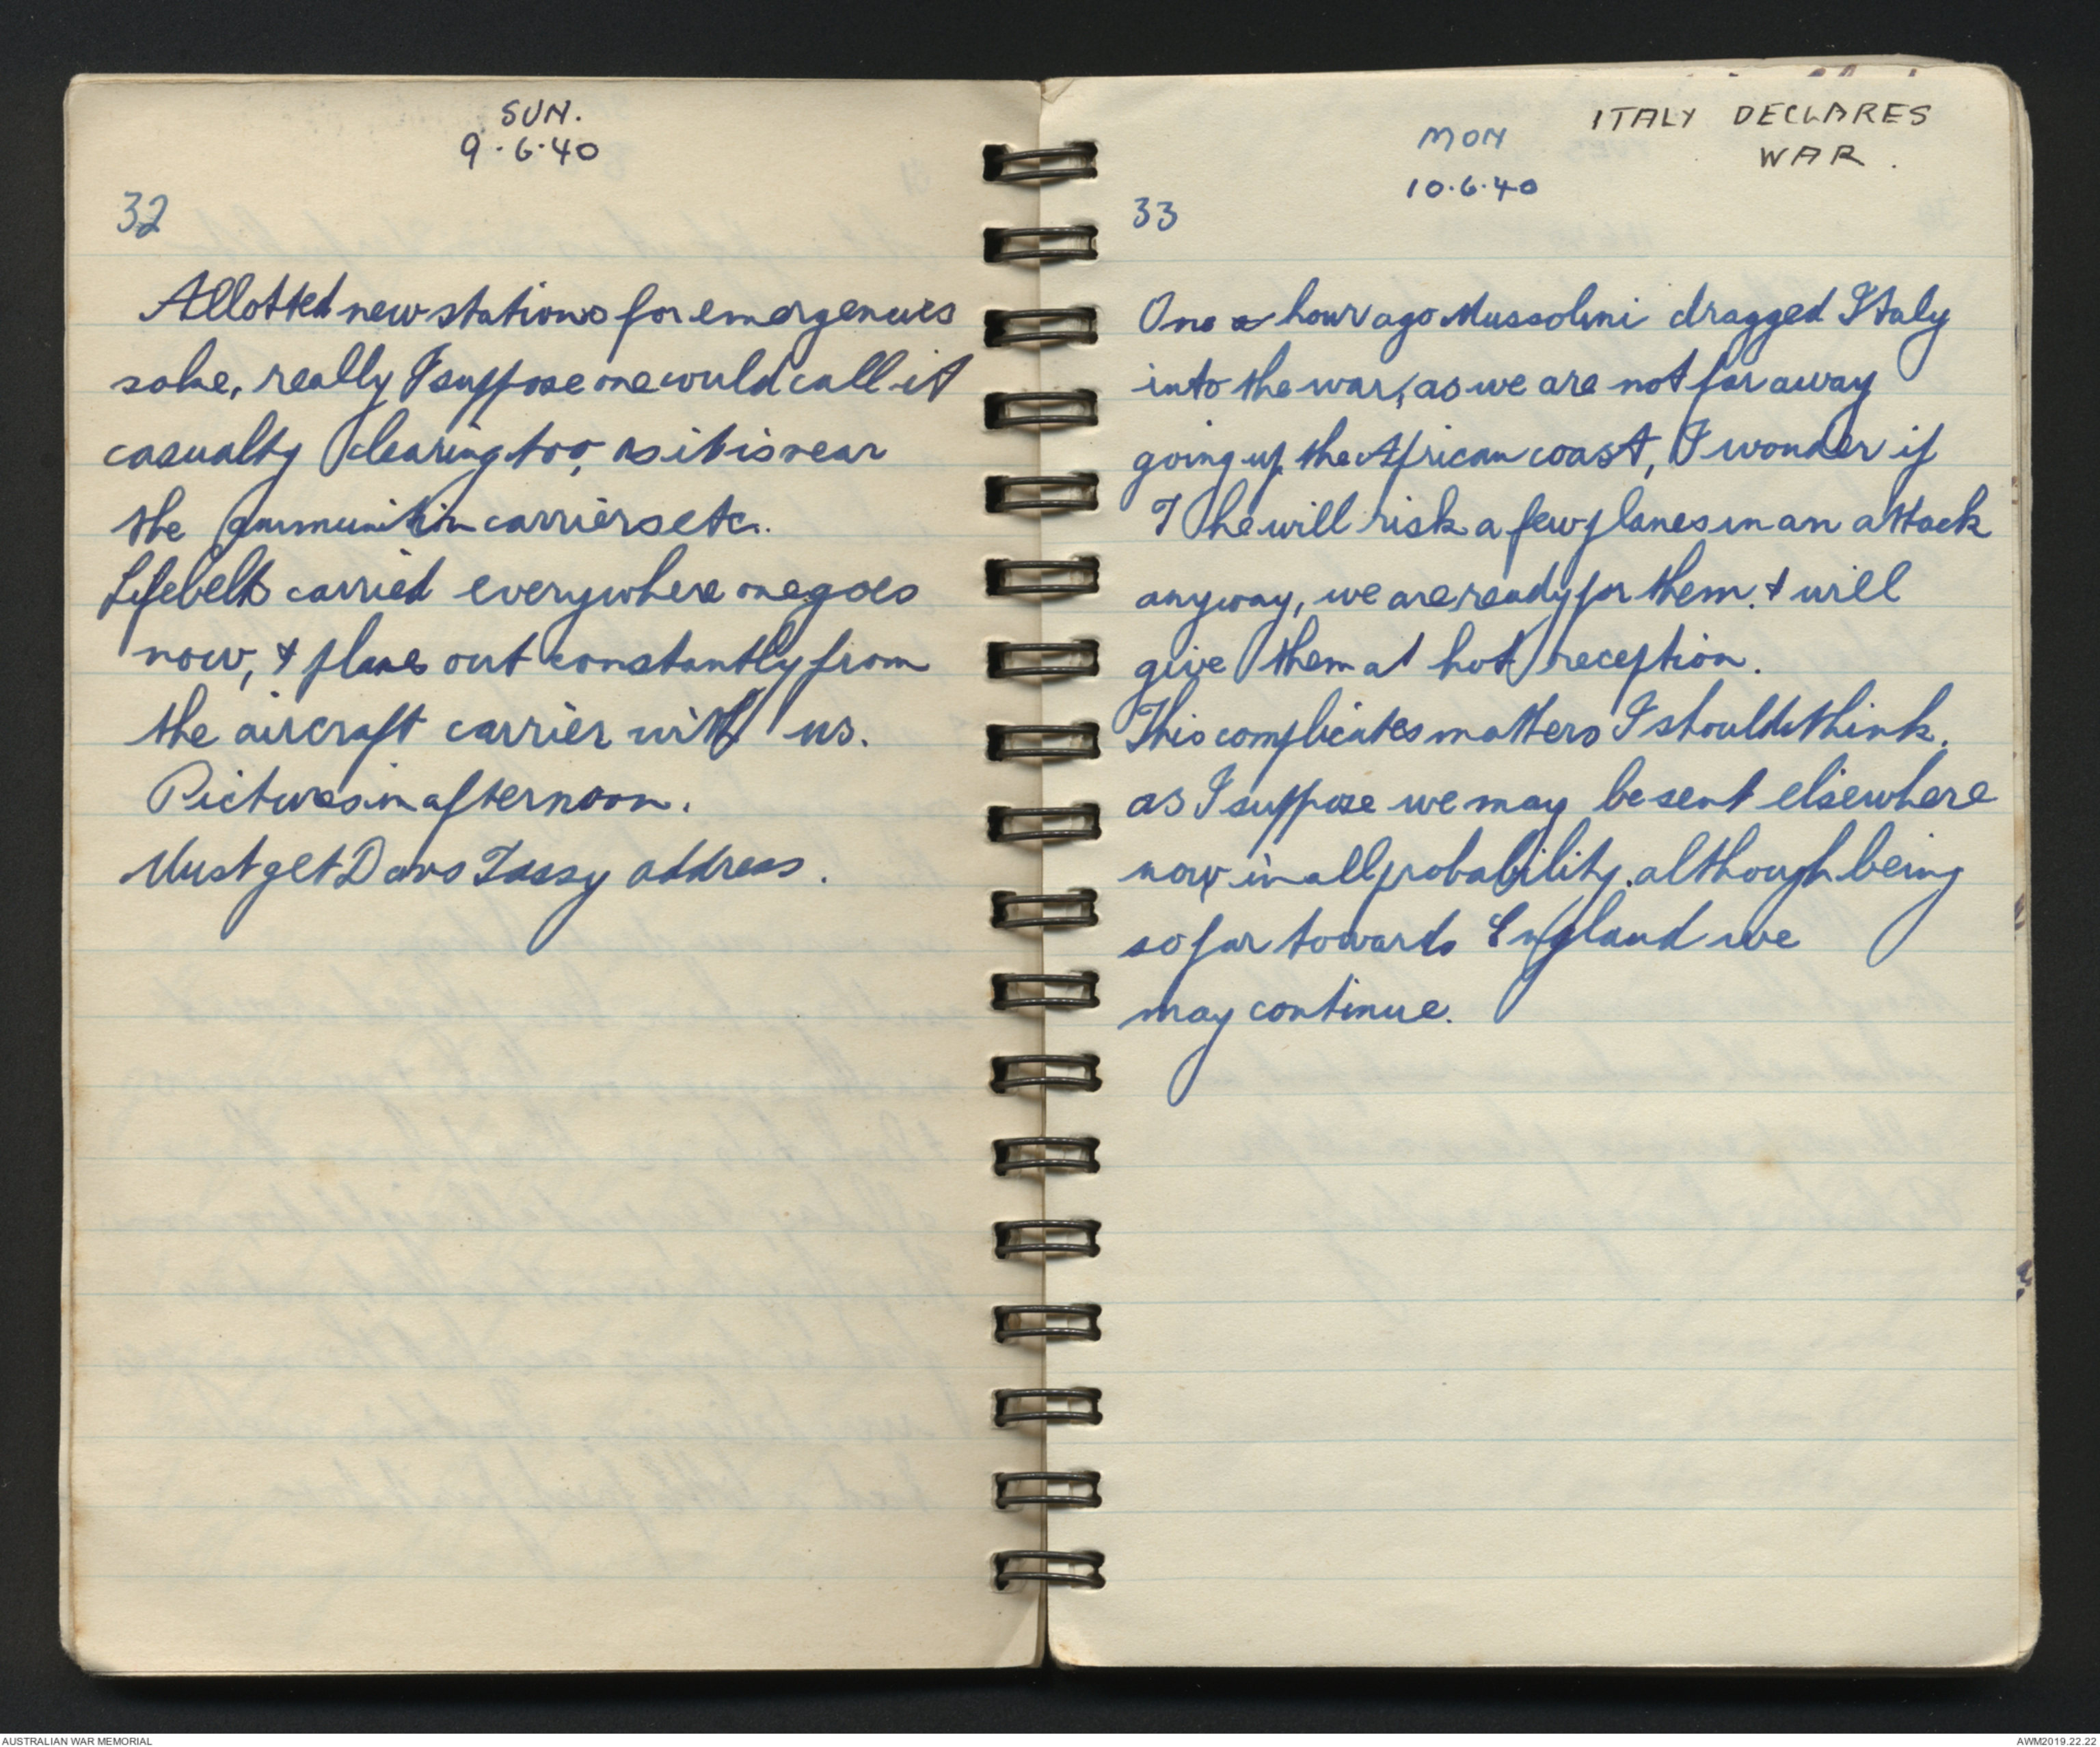 SUN.
9.6.40
32
Allotted new stations for emergencies
sake, really I suppose one would call it
casualty clearing too, as it is near
the ammunition carriers etc.
Lifebelts carried everywhere one goes
now, & planes out constantly from
the aircraft carrier with us.
Pictures in afternoon.
Must get Davs Tassy address.
ITALY DECLARES
WAR.
MON
10.6.40
33
One hour ago Mussolini dragged Italy
into the war, as we are not far away
going up the African coast, I wonder if
he will risk a few planes in an attack
anyway, we are ready for them. & will
give them a hot reception.
This complicates matters I should think.
as I suppose we may be sent elsewhere
now in all probability, although being
so far towards England we
may continue.
AUSTRALIAN WAR MEMORIAL
AWM2019.22.22